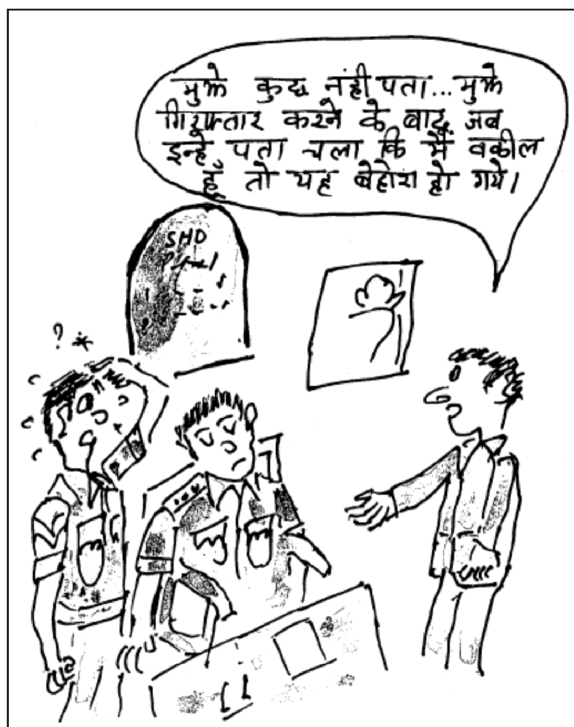 मुझे कुछ नंही पता...मुझे
गिरफ्तार करने के बाद जब
इन्हे पता चला कि मैं वकील
हूँ तो यह बेहोश हो गये।
SHO
? *